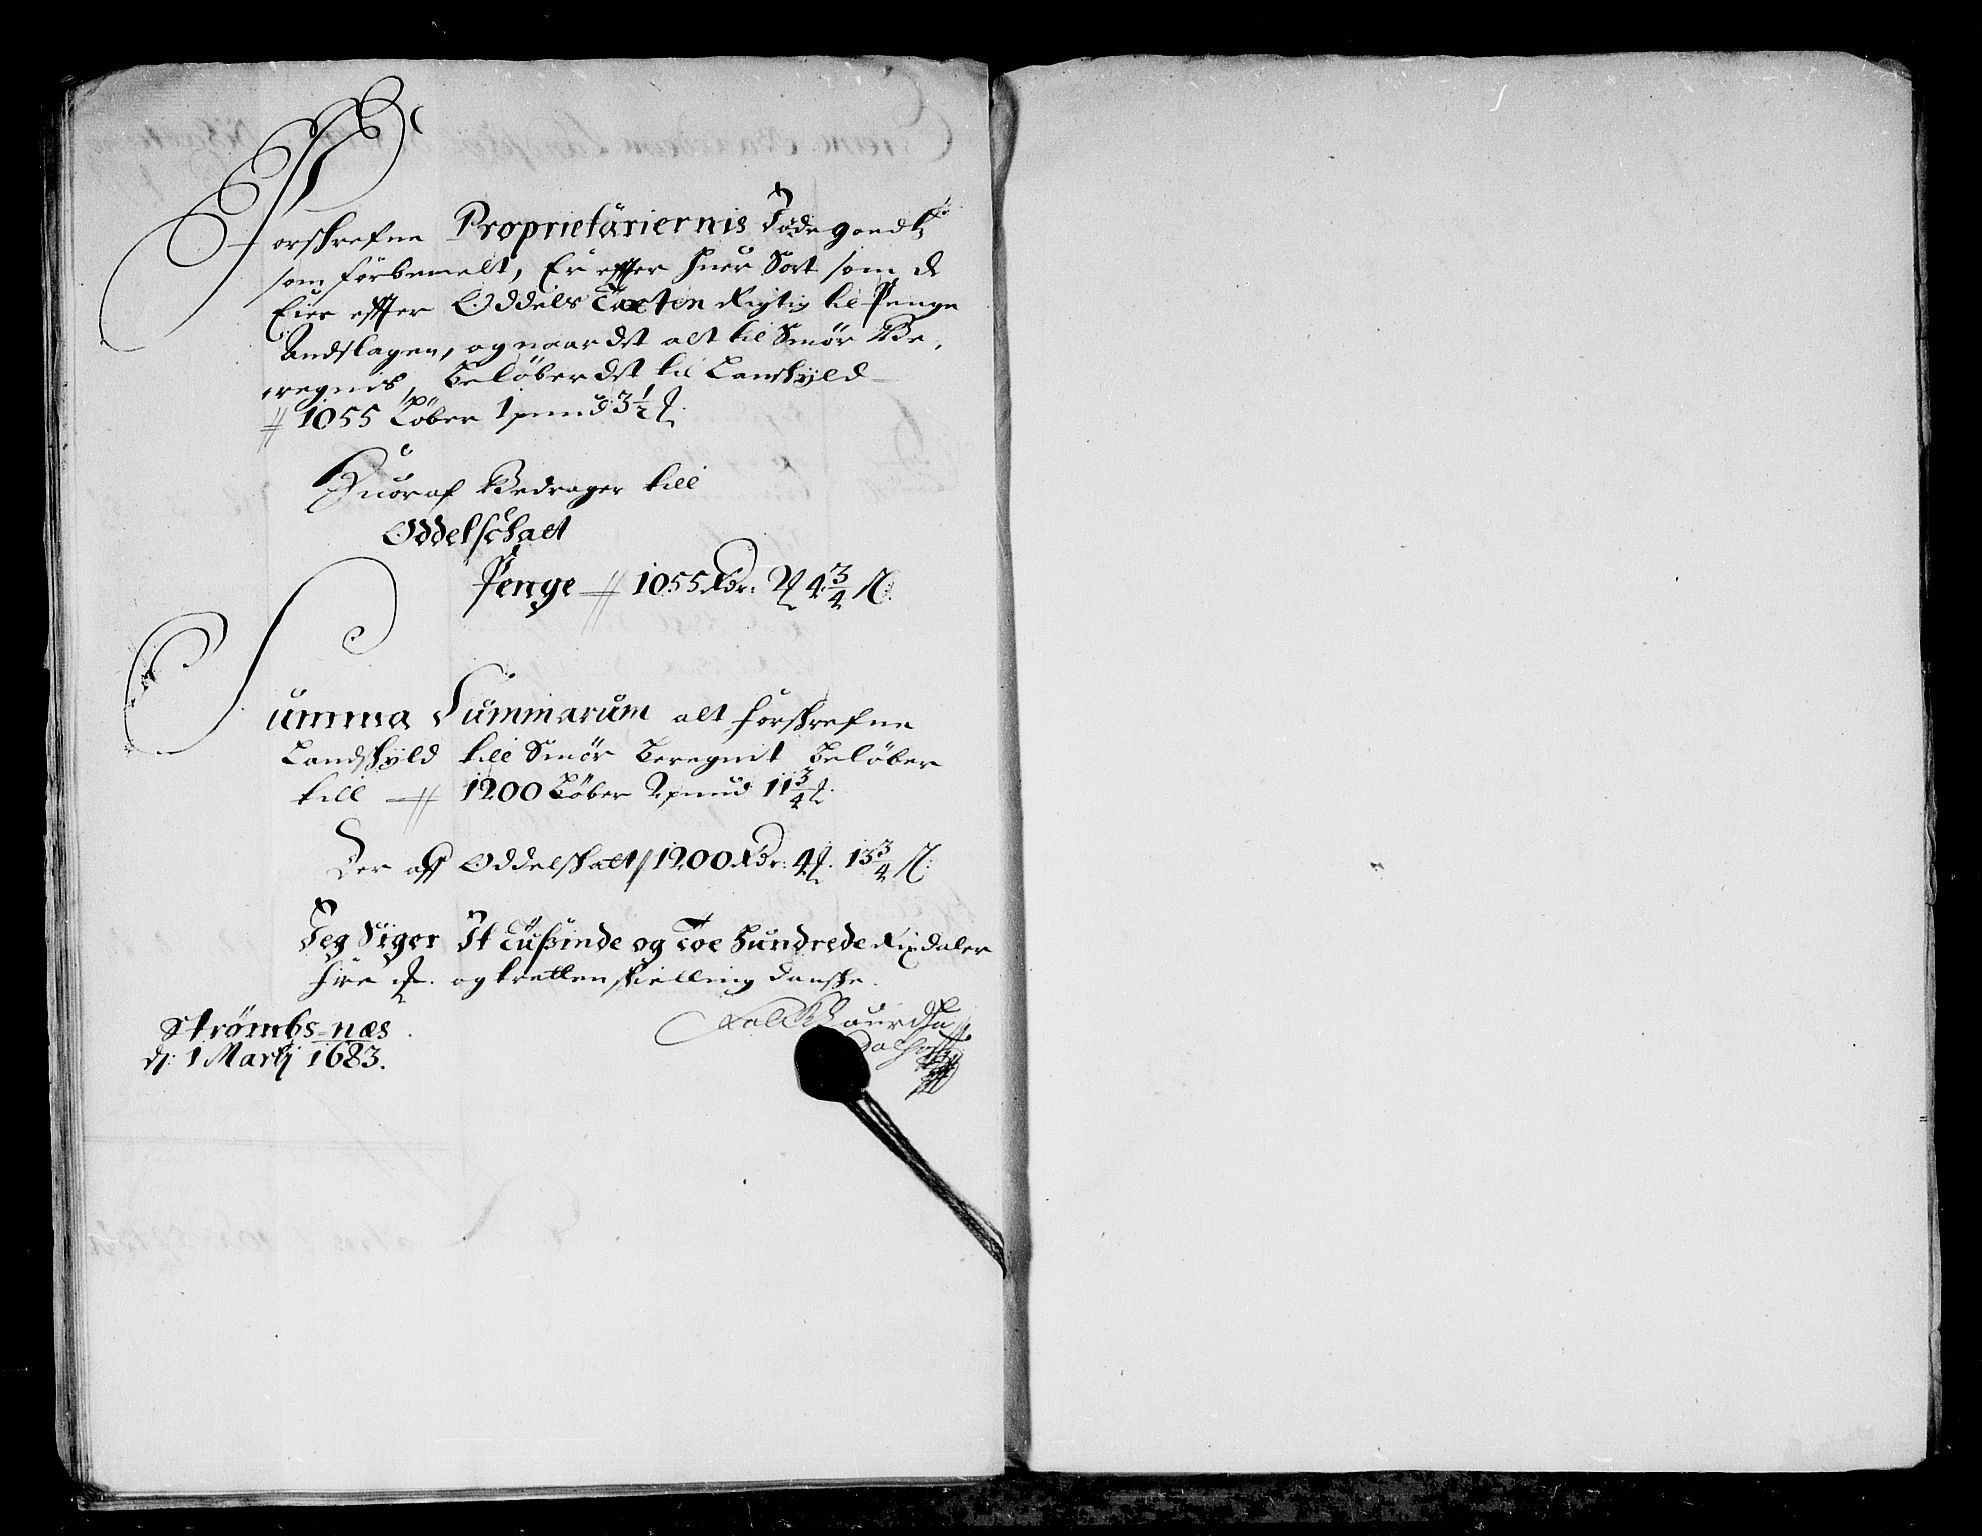 Forskrefne Proprietäriernis Jodegoedtz
som förbemelt, Er effter huer Sort som de
Eier effter Oddels Taxten Rigtig til Penge
Andslagen, og naar det alt til Smör Be,
regnis, Belöber det til Landskyld
1055 Löber 1 pund 3½ ℔.
Huoraf Bedrager till
Oddelschatt
Penge 1055 Rdr: 2 ℔ 4¾ ß.
Summa Summarum alt forskrefne
Landskyld till Smör Beregnit Belöber
till 1200 Löber 2 pund 11¾ ℔.
Der aff Oddelskatt 1200 Rdr: 4 ℔. 13¾ ß:
Jeg Siger It Tußinde og Toe Hundrede Rixdaler
fire ℔. og tretten skielling danske.
Strömbs-næs
d: 1 Martj 1683.